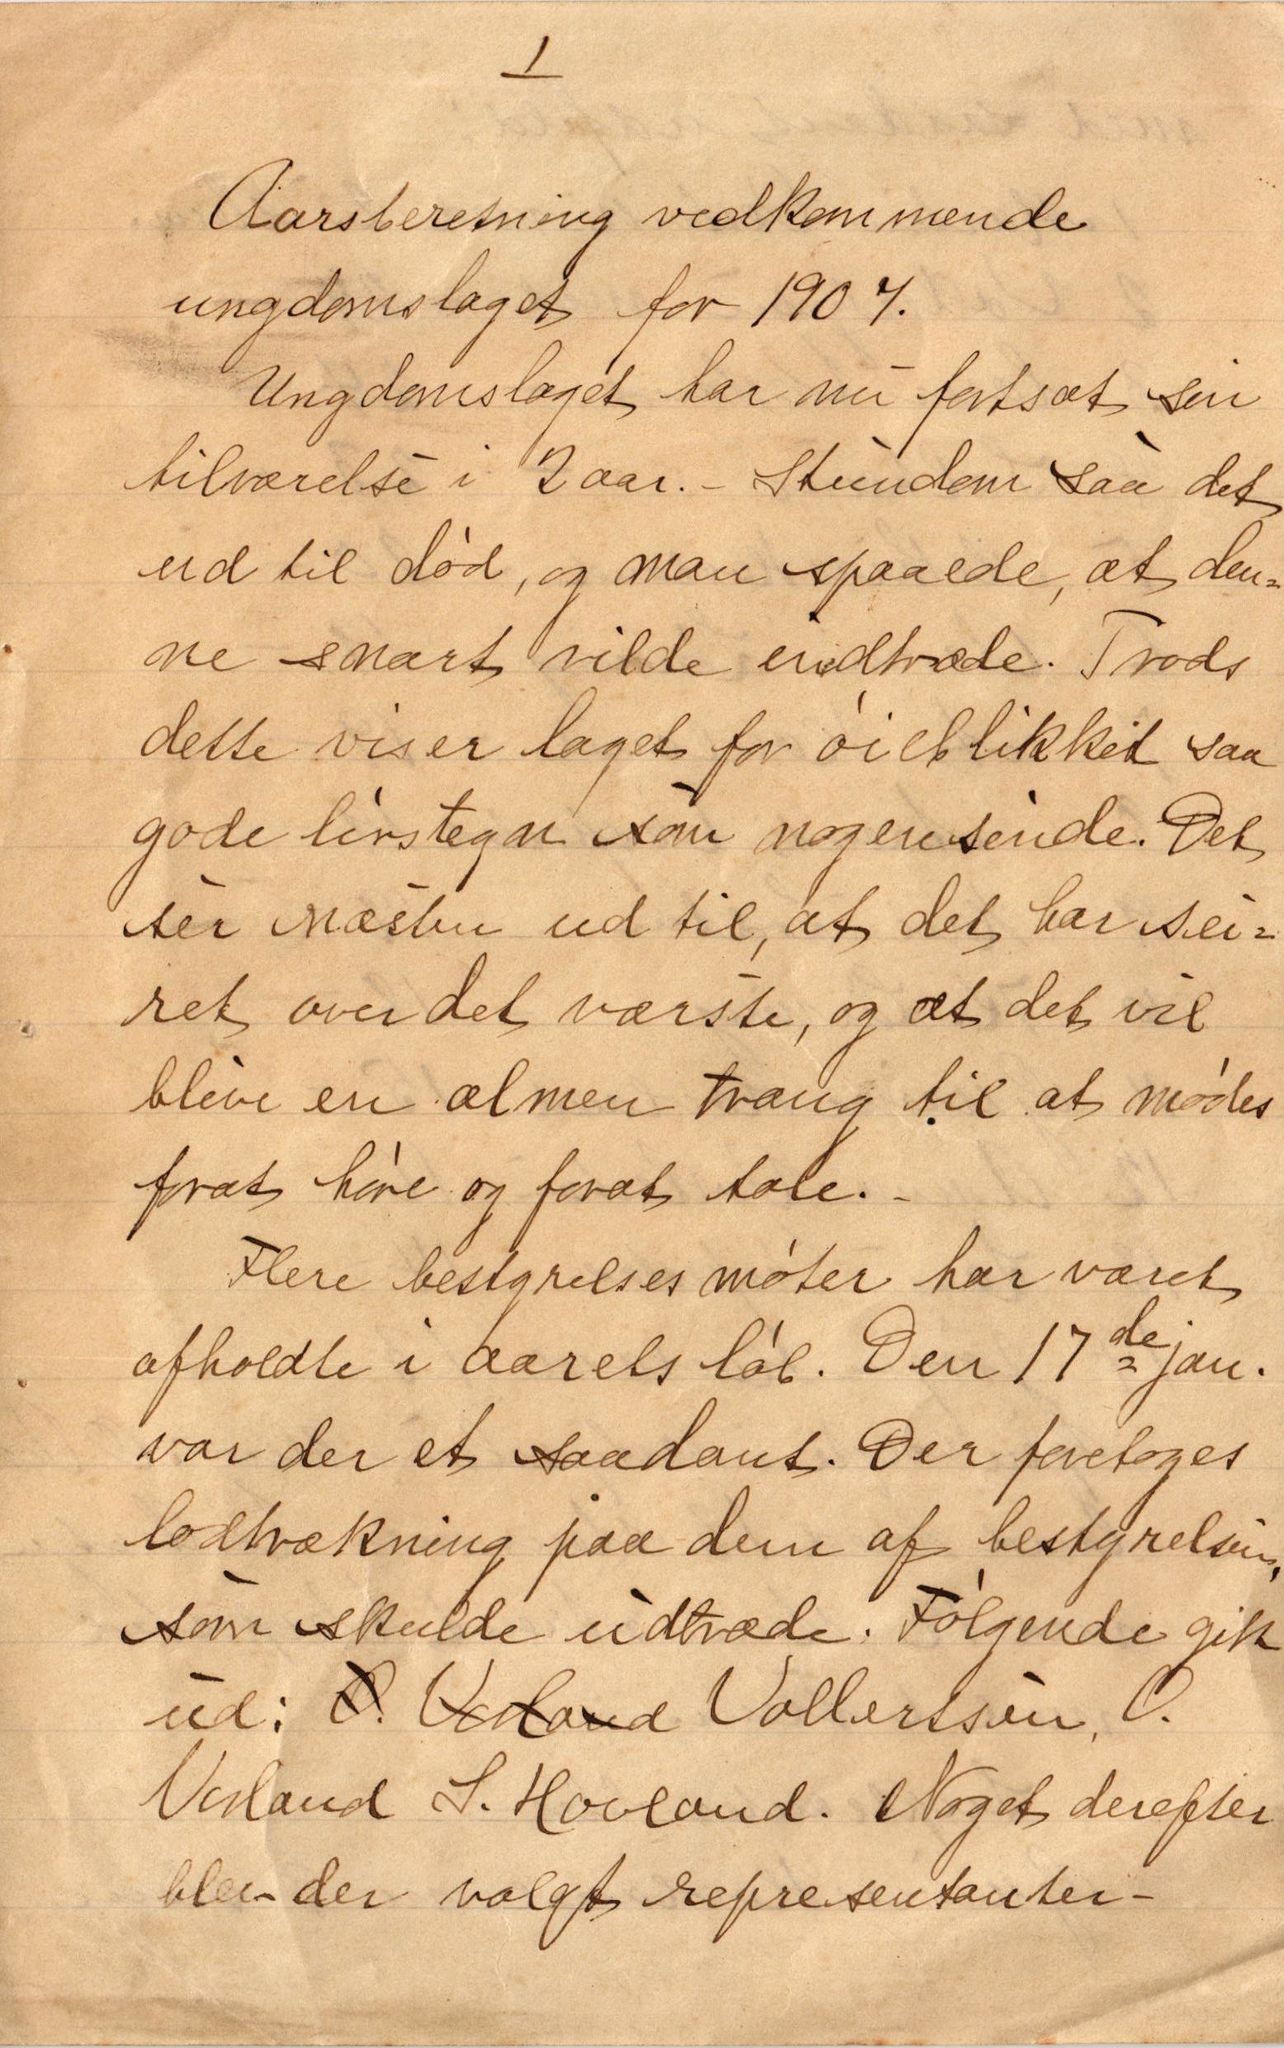 1
Aarsberetning vedkommende
ungdomslaget for 1907.
Ungdomslaget har nu fortsat sin
tilværelse i 2 aar. - Stundom saa det
ud til død, og man spaaede, at den=
ne snart vilde indtræde. Trods
dette viser laget for øieblikket saa
gode livstegn som nogensinde. Det
ser næsten ud til, at det har sei=
ret over det værste, og at det vil
blive en almen trang til at mødes
forat høre og forat tale. -
Flere bestyrelsesmøter har været
afholdte i aarets løb. Den 17de jan.
var der et saadant. Der foretoges
lodtrækning paa dem af bestyrelsen,
som skulde udtræde. Følgende gik
ud: O. Verland Vollertsen, O.
Verland S. Hovland. Noget derefter
blev der valgt representanter-